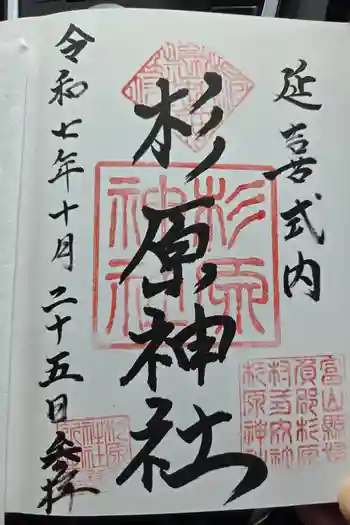 延喜式内
杉原神社
令和七年十月二十五日参拝
杉原
神社
富山縣婦
負郡杉原
村
杉原神社